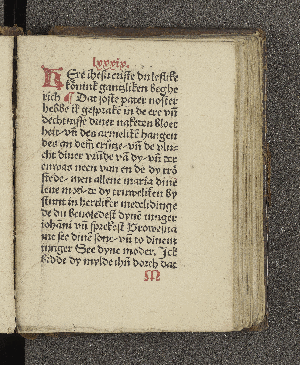 lxxxix.
Ere ihesu criste du leflike
könink gantzliken beghe
rich ¶ Dat söste pater noster
hebbe ik gesprake in de ere vñ
dechtnisse diner naketen bloet
heit· vñ des armeliken hangen
des an dem crütze· vñ de vluch
cht diner vründe vā dy· vñ tor
en was neen van en de dy trö
stede· men allene maria dine
leue mod· de dy truweliken by
stunt in herteliker medelidinge
de du beuoledest dyne iunger
iohāni vñ sprekest Vrowe nu
me see dinē sone· vñ to dinem
iunger See dyne moder. Ick
bidde dy mylde ihū dorch dat
M